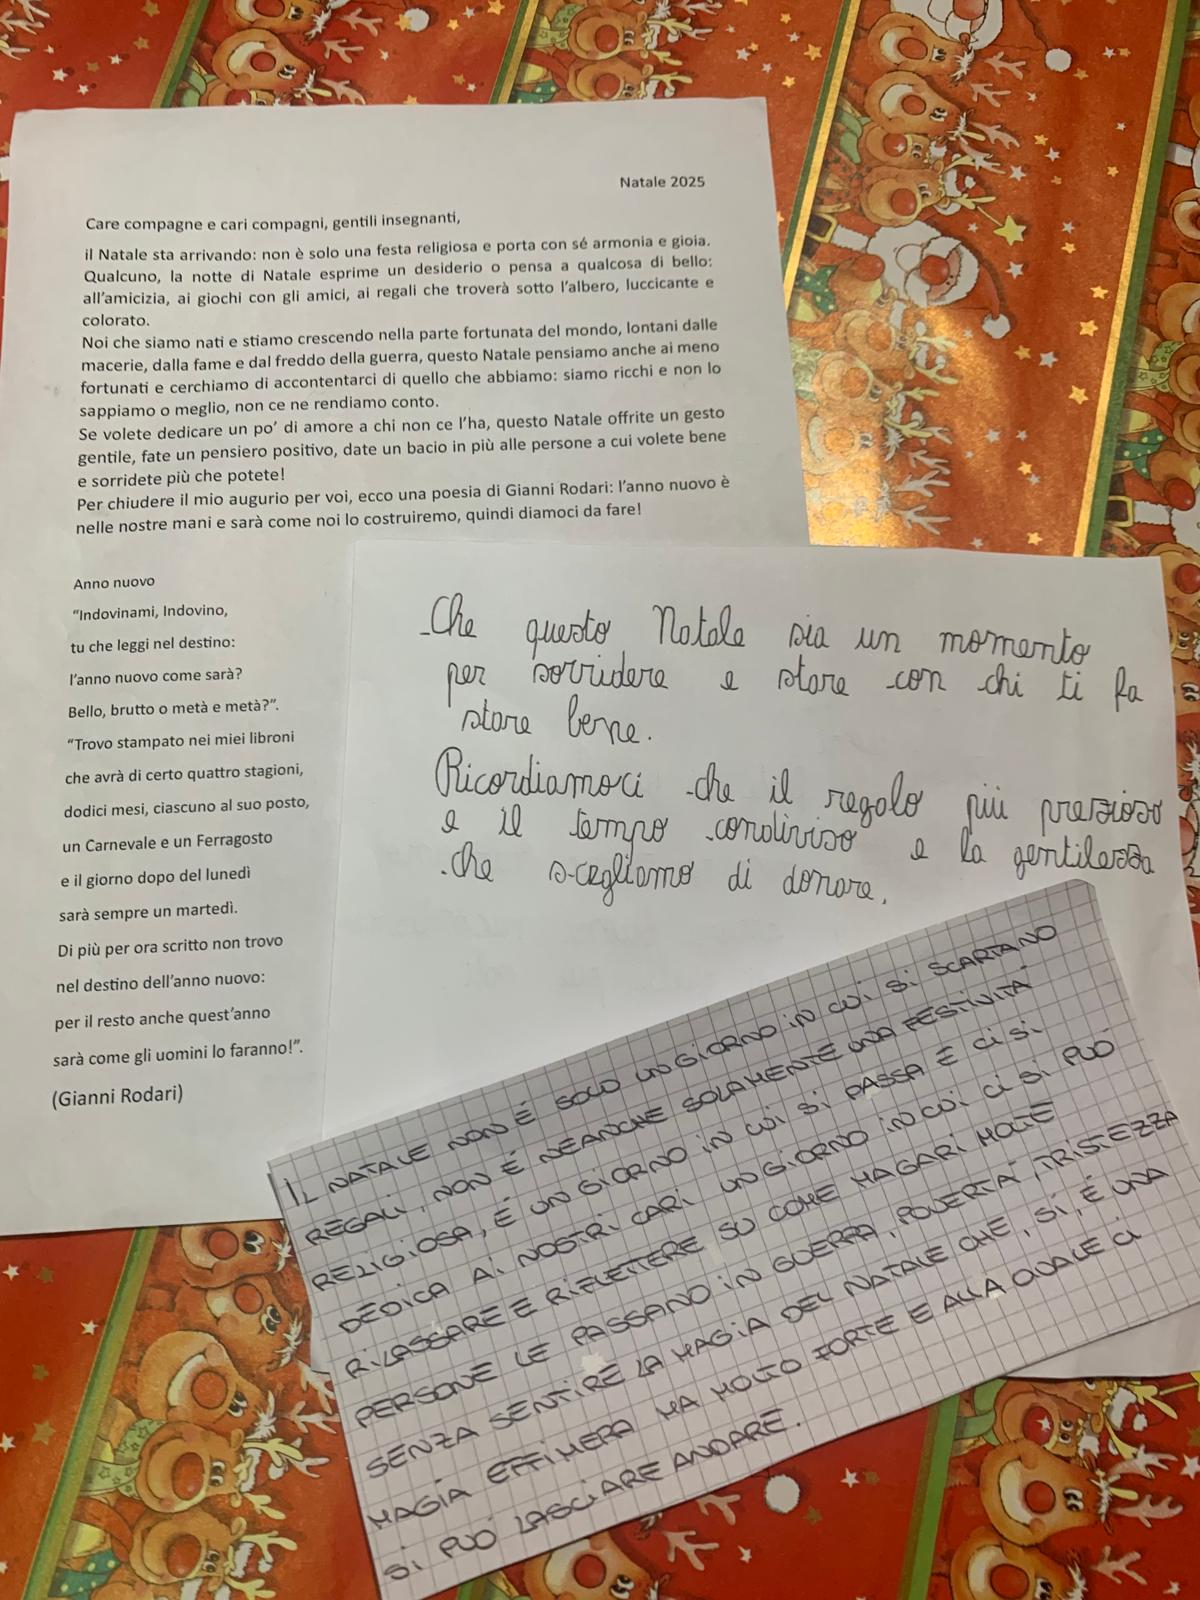 Natale 2025
Care compagne e cari compagni, gentili insegnanti,
il Natale sta arrivando: non è solo una festa religiosa e porta con sé armonia e gioia.
Qualcuno, la notte di Natale esprime un desiderio o pensa a qualcosa di bello:
all'amicizia, ai giochi con gli amici, ai regali che troverà sotto l'albero, luccicante e
colorato.
Noi che siamo nati e stiamo crescendo nella parte fortunata del mondo, lontani dalle
macerie, dalla fame e dal freddo della guerra, questo Natale pensiamo anche ai meno
fortunati e cerchiamo di accontentarci di quello che abbiamo: siamo ricchi e non lo
sappiamo o meglio, non ce ne rendiamo conto.
Se volete dedicare un po' di amore a chi non ce l'ha, questo Natale offrite un gesto
gentile, fate un pensiero positivo, date un bacio in più alle persone a cui volete bene
e sorridete più che potete!
Per chiudere il mio augurio per voi, ecco una poesia di Gianni Rodari: l'anno nuovo è
nelle nostre mani e sarà come noi lo costruiremo, quindi diamoci da fare!
Anno nuovo
"Indovinami, Indovino,
tu che leggi nel destino:
l'anno nuovo come sarà?
Bello, brutto o metà e metà?".
"Trovo stampato nei miei libroni
che avrà di certo quattro stagioni,
dodici mesi, ciascuno al suo posto,
un Carnevale e un Ferragosto
e il giorno dopo del lunedì
sarà sempre un martedì.
Di più per ora scritto non trovo
nel destino dell'anno nuovo:
per il resto anche quest'anno
sarà come gli uomini lo faranno!".
(Gianni Rodari)
Che questo Natale sia un momento
per sorridere e stare con chi ti fa
stare bene.
Ricordiamoci che il regalo più prezioso
e il tempo condiviso e la gentilezza
che scegliamo di donare.
IL NATALE NON É SOLO UN GIORNO IN CUI SI SCARTANO
REGALI, NON É NEANCHE SOLAMENTE UNA FESTIVITÁ
RELIGIOSA, É UN GIORNO IN CUI SI PASSA E CI SI
DEDICA AI NOSTRI CARI UN GIORNO IN CUI CI SI PUÓ
RILASSARE E RIFLETTERE SU COME MAGARI MOLTE
PERSONE LE PASSANO IN GUERRA, POVERTÁ, TRISTEZZA
SENZA SENTIRE LA MAGIA DEL NATALE CHE, SÍ, É UNA
MAGIA EFFIMERA MA MOLTO FORTE E ALLA QUALE CI
SI PUÓ LASCIARE ANDARE.